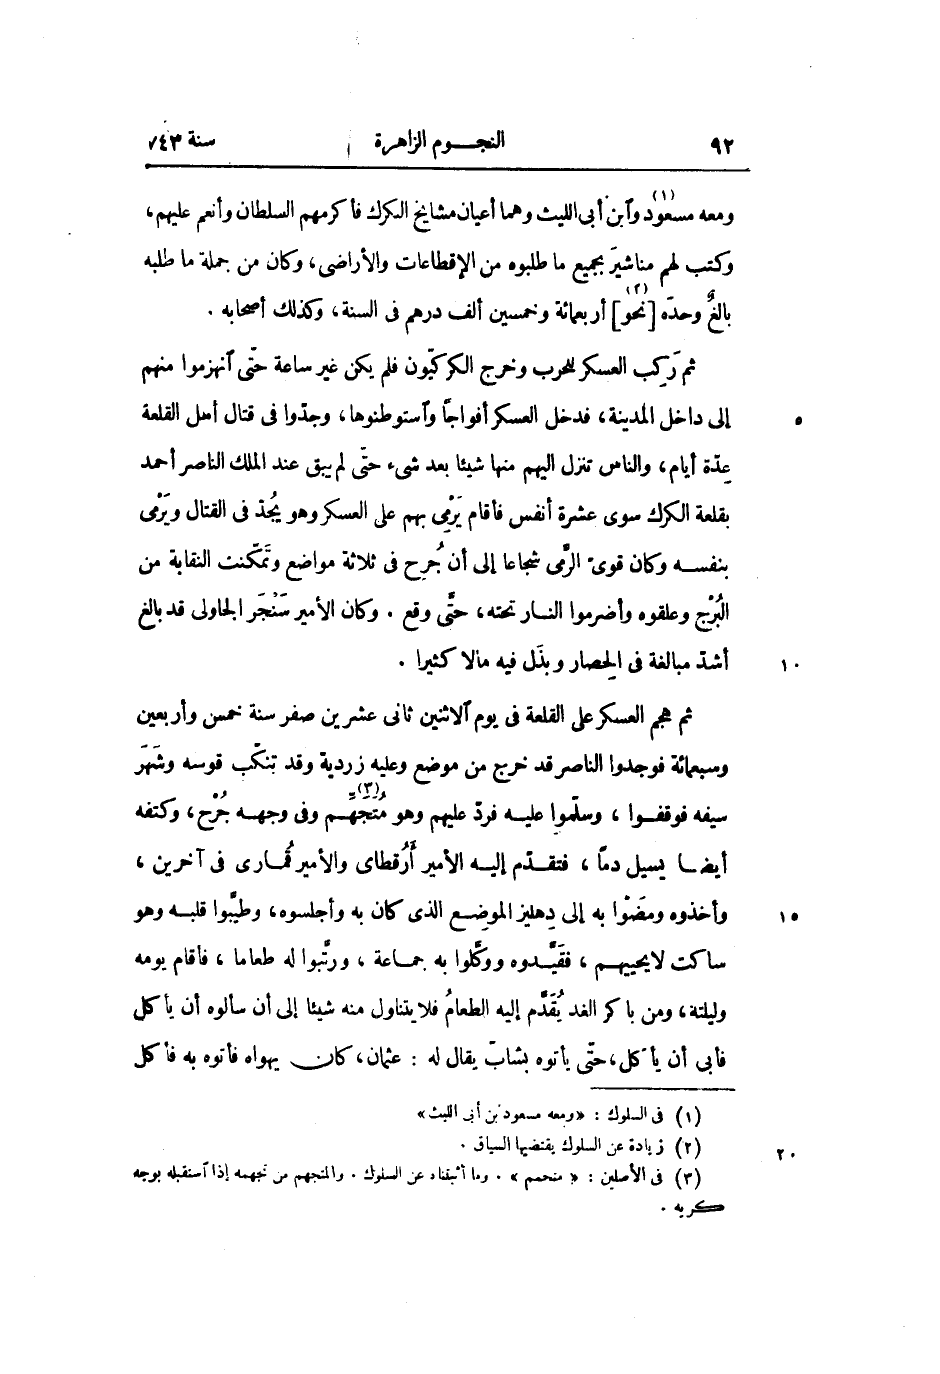 ٩٢ النجـــوم الزاهرة سنة ٧٤٣
ومعه مسعود(١) وآبن أبى الليث وهما أعيان مشايخ الكرك فأكرمهم السلطان وأنعم عليهم،
وكتب لهم مناشيرَ بجميع ما طلبوه من الإقطاعات والأراضى، وكان من جملة ما طلبه
بالغٌ وحدَه [نحو](٢) أربعمائة وخمسين ألف درهم فى السنة، وكذلك أصحابه .
ثم رَكِب العسكر للحرب وخرج الكركيّون فلم يكن غير ساعة حتّى آنهزموا منهم
إلى داخل المدينة، فدخل العسكر أفواجًا وآستوطنوها، وجدّوا فى قتال أهل القلعة
٥
عِدّة أيام، والناس تنزل اليهم منها شيئا بعد شىء حتّى لم يبق عند الملك الناصر أحمد
بقلعة الكرك سوى عشرة أنفس فأقام يَرْمِى بهم على العسكر وهو يُجِدّ فى القتال ويَرْمى
بنفســه وكان قوىّ الرَّمى شجاعا إلى أن جُرح فى ثلاثة مواضع وتَمكّنت النقابة من
البُرْج وعلقوه وأضرموا النـار تحته، حتَّى وقع . وكان الأمير سَنْجَر الجاولى قد بالغ
أشدّ مبالغة فى الحِصار وبذَل فيه مالا كثيرا .
١٠
ثم هجم العسكر على القلعة فى يوم آلاثنين ثانى عشرين صفر سنة خمس وأربعين
وسبعمائة فوجدوا الناصر قد خرج من موضع وعليه زردية وقد تنكّب قوسه وشَهَر
سيفه فوقفــوا ، وسلّموا عليــه فردّ عليهم وهو مُتجهِّــم(٣) وفى وجهــه جُرْح، وكتفه
أيضــا يسيل دمًا ، فتقــدّم إليه الأمير أَرُقطاى والأمير قُمَارى فى آخرين ،
وأخذوه ومضَوْا به إلى دِهليز الموضِــع الذى كان به وأجلسوه، وطيّبوا قلبــه وهو
١٥
ساكت لا يجيبهــم ، فقَيَّــدوه ووكَّلوا به جمــاعة ، ورتَّبوا له طعاما ، فأقام يومه
وليلته، ومن باكر الغد يُقَدَّم إليه الطعامُ فلا يتناول منه شيئا إلى أن سألوه أن يأكل
فأبى أن يأكل، حتّى يأتوه بشابّ يقال له : عثمان، كان يهواه فأتوه به فأكل
(١) فى السلوك : «ومعه مسعود بن أبى الليث»
(٢) زيادة عن السلوك يقتضيها السياق .
٢٠
(٣) فى الأصلين : « متحمم » . وما أثبتناه عن السلوك . والمتجهم من تجهمه إذا آستقبله بوجه
كريه .